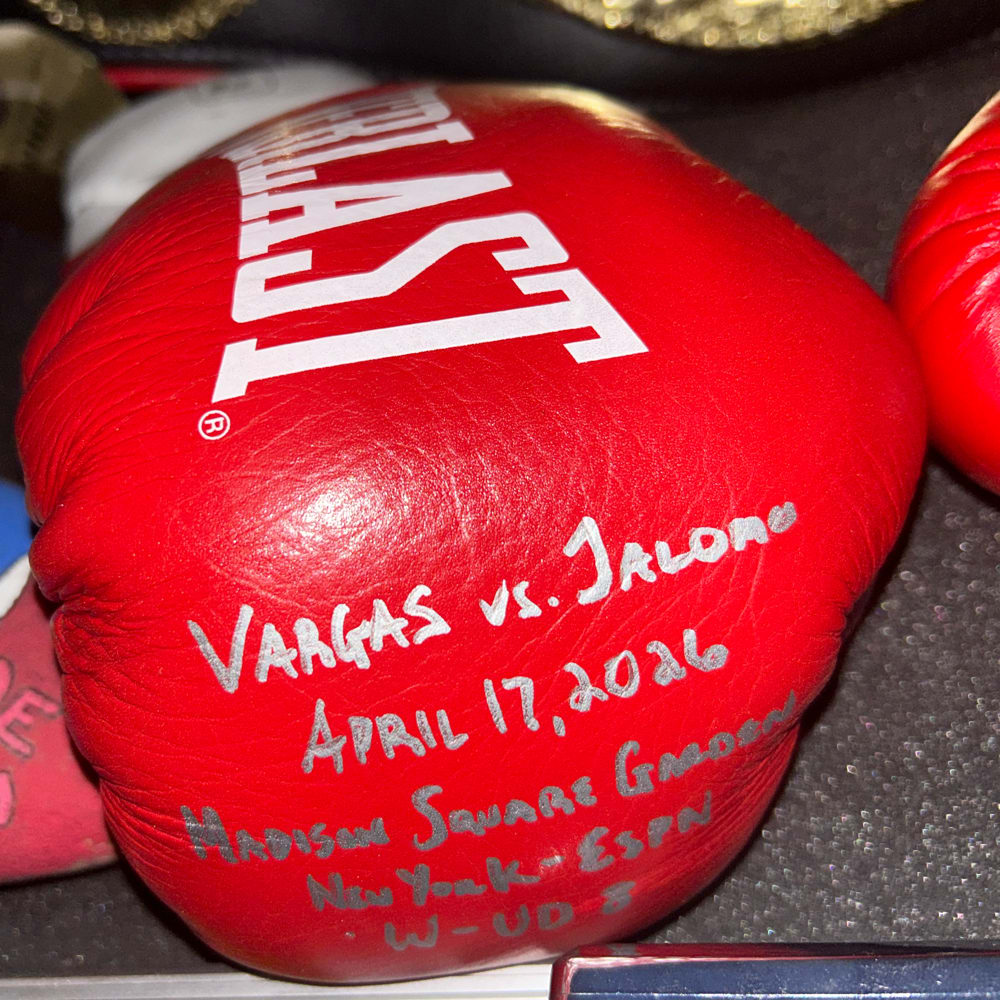 ERLAST
®
VARGAS VS. JALOMO
APRIL 17, 2026
MADISON SQUARE GARDEN
NEW YORK - ESPN
W - UD 8